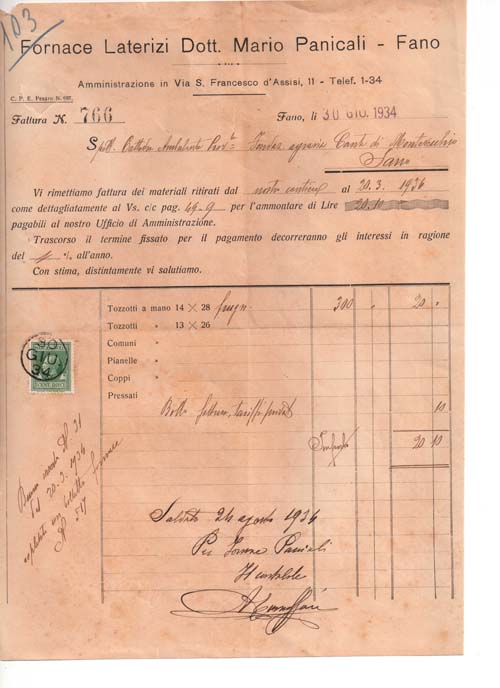 103
Fornace Laterizi Dott. Mario Panicali - Fano
Amministrazione in Via S. Francesco d'Assisi, 11 - Telef. 1-34
C. P. E. Pesaro N.
Fattura N. 766
Fano, li 30 GIU. 1934
Spett. Cattedra Ambulante Fondaz. agraria Conti di Montevecchio
Fano
Vi rimettiamo fattura dei materiali ritirati dal nostro cantiere al 20.3. 1934
come dettagliatamente al Vs. c/c pag. 49-9 per l'ammontare di Lire 20.10
pagabili al nostro Ufficio di Amministrazione.
Trascorso il termine fissato per il pagamento decorreranno gli interessi in ragione
del % all'anno.
Con stima, distintamente vi salutiamo.
Tozzotti a mano 14 × 28 300 " 20 "
Tozzotti " 13 × 26
Comuni "
Pianelle "
Coppi "
Pressati
Bollo fattura, 10
20 10
30
GIU.
34
Buono N. 31
del 20.3.1934
N. 517
Saldato 24 agosto 1934
Per Fornace Panicali
Il contabile